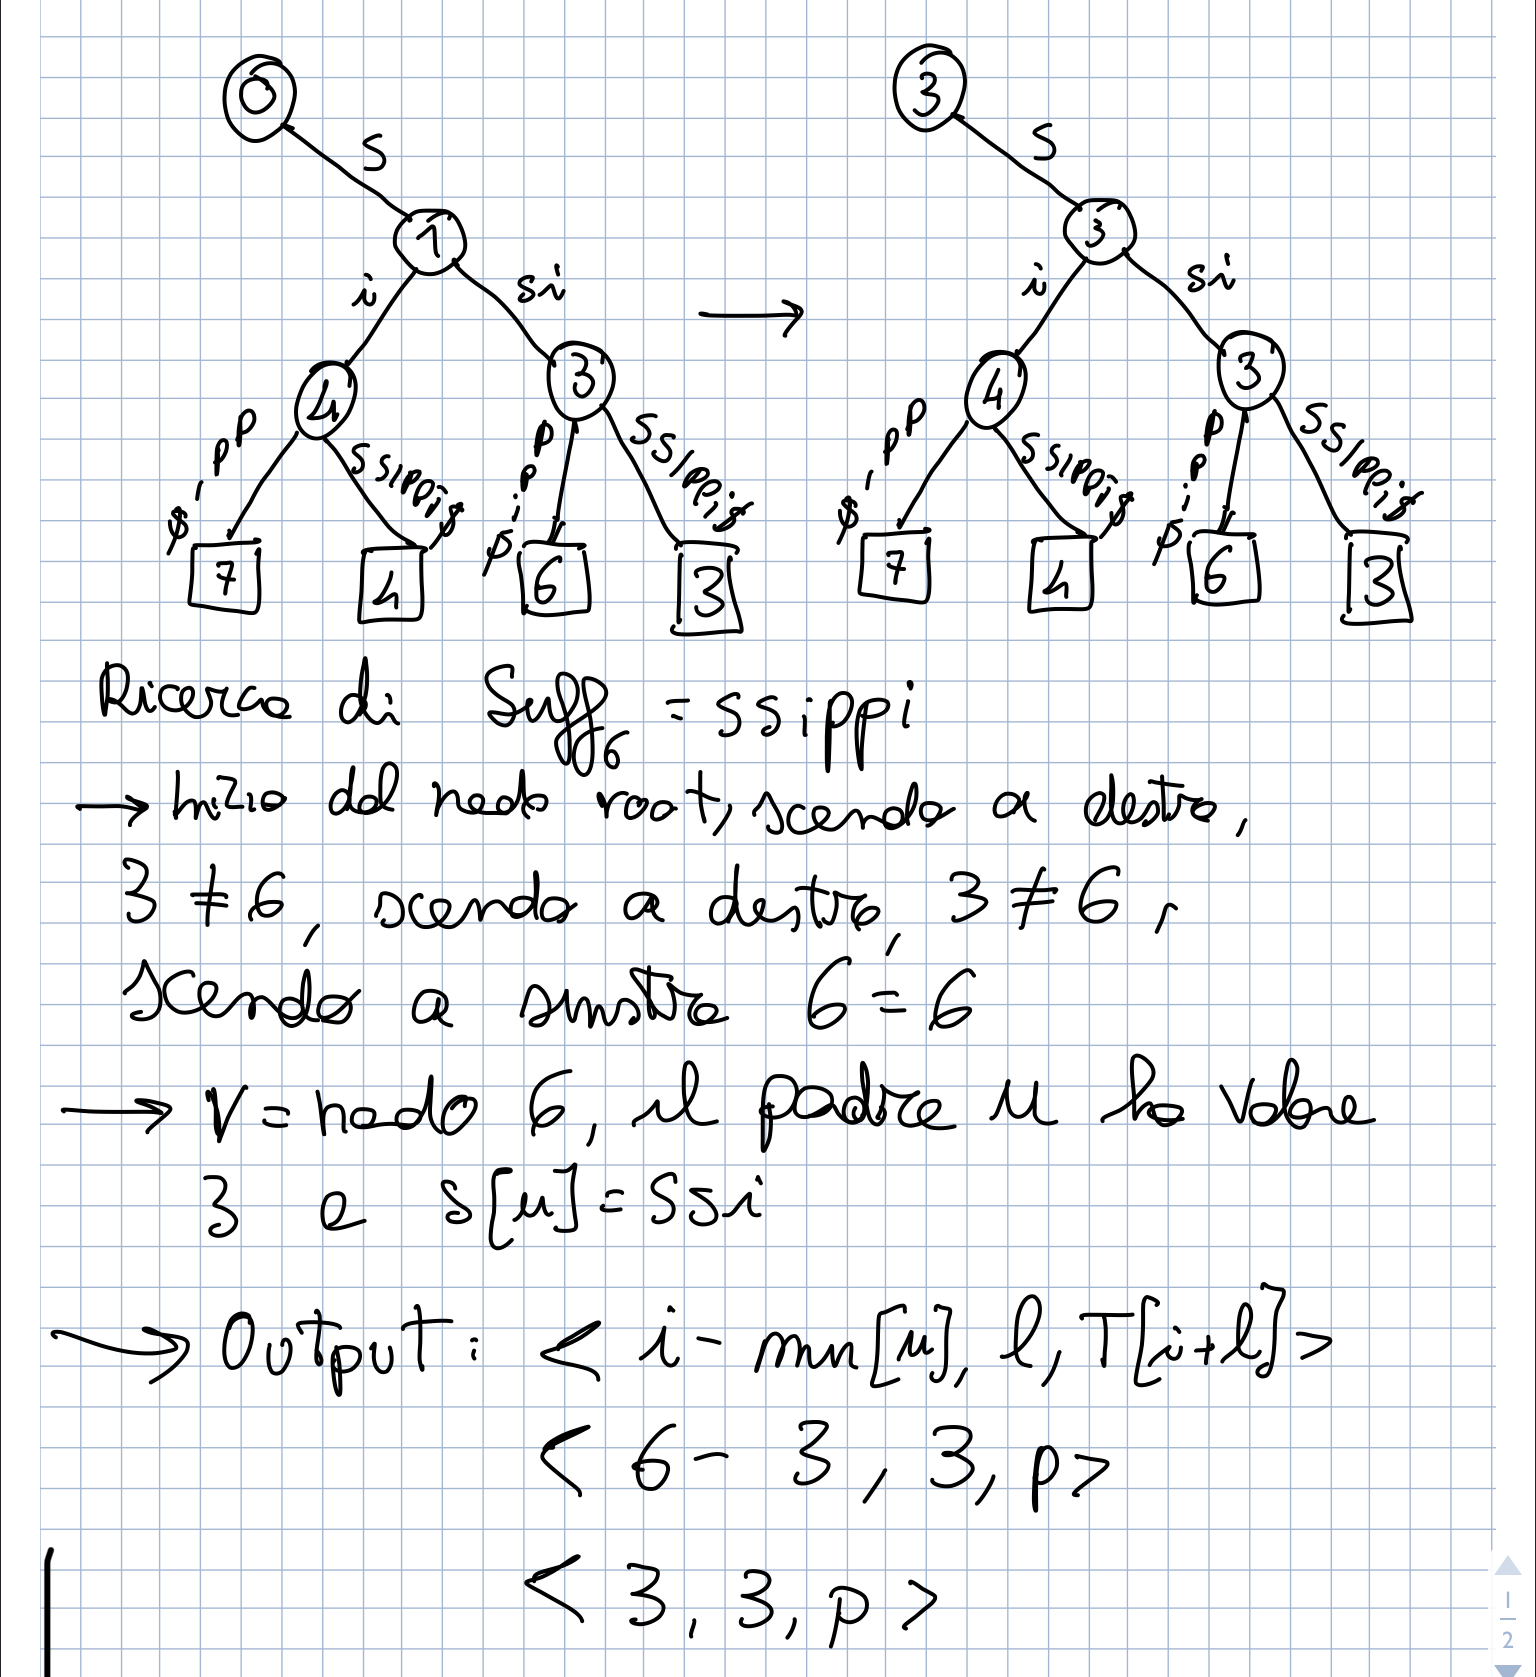 0 3
S S
1 3
i si i si
4 3 4 3
p p i $ s s i p p i $ p p i $ s s i p p i $ p p i $ s s i p p i $ p p i $ s s i p p i $
7 4 6 3 7 4 6 3
Ricerca di Suff6 = ssippi
→ Inizio dal nodo root, scendo a destra,
3 ≠ 6, scendo a destra, 3 ≠ 6,
scendo a sinistra 6 = 6
→ V = nodo 6, il padre u ha valore
3 e s[u] = ssi
→ Output: < i - min[u], l, T[i+l] >
< 6 - 3, 3, p >
< 3, 3, p >
1
2